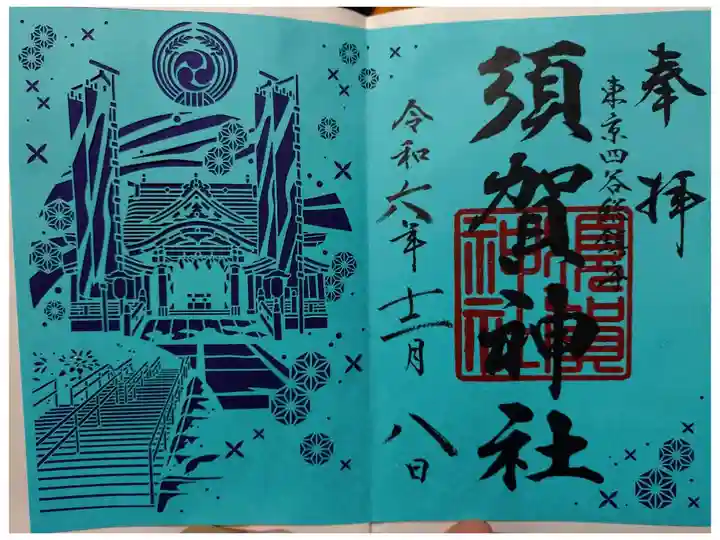 奉拝
東京四谷総鎮守
須賀神社
須賀神社
令和六年十一月八日